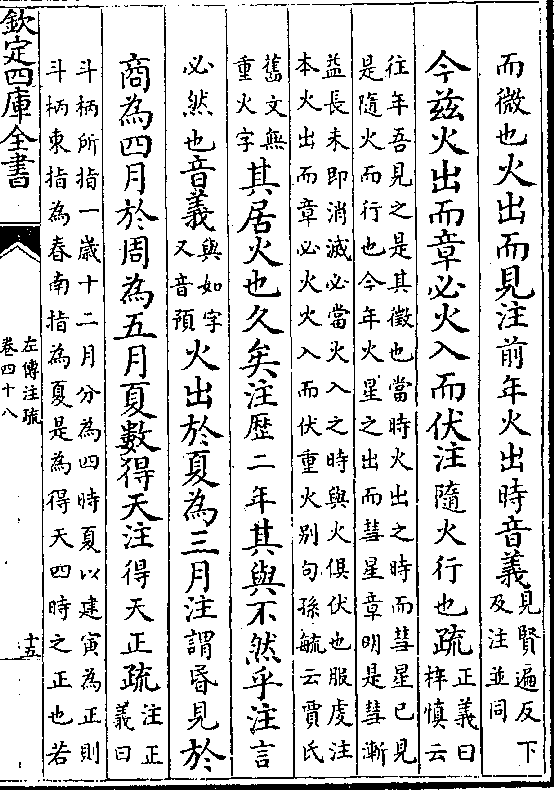 而微也火出而見注前年火出時音義見賢遍反下
及注並同
今茲火出而章必火入而伏注隨火行也疏正義曰
梓慎云
往年吾見之是其徵也當時火出之時而彗星已見
是隨火而行也今年火星之出而彗星章明是彗漸
益長未即消滅必當火入之時與火俱伏也服虔注
本火出而章必火火入而伏重火別句孫毓云賈氏
舊文無
重火字其居火也久矣注歷二年其與不然乎注言
必然也音義與如字
又音預火出於夏為三月注謂昏見於
商為四月於周為五月夏數得天注得天正疏注正
義曰
斗柄所指一歲十二月分為四時夏以建寅為正則
斗柄東指為春南指為夏是為得天四時之正也若
欽定四庫全書
左傳注疏
卷四十八
十五